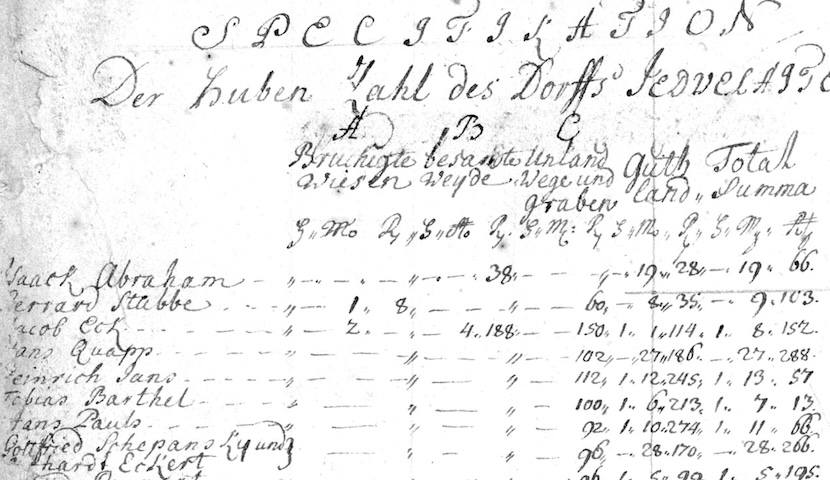 SPECIFIKATION
Der huben Zahl des Dorffs
A B C
Bruchigte besamte Unland Guth Total
Wiesen Weyde Wege und land Summa
graben
Isaack Abraham 38 19 28 19 66
Gerrard Stubbe 1 8 60 8 35 9 103
Jacob Eck 2 4 188 150 1 1 114 1 8 152
Hans Quapp 102 27 186 27 288
Heinrich Jans 112 1 12 245 1 13 57
Tobias Barthel 100 1 6 213 1 7 13
Hans Pauls 92 1 10 274 1 11 66
Gottfried Schepansky und 96 28 170 28 266
Eckert
96 1 5 99 1 5 195